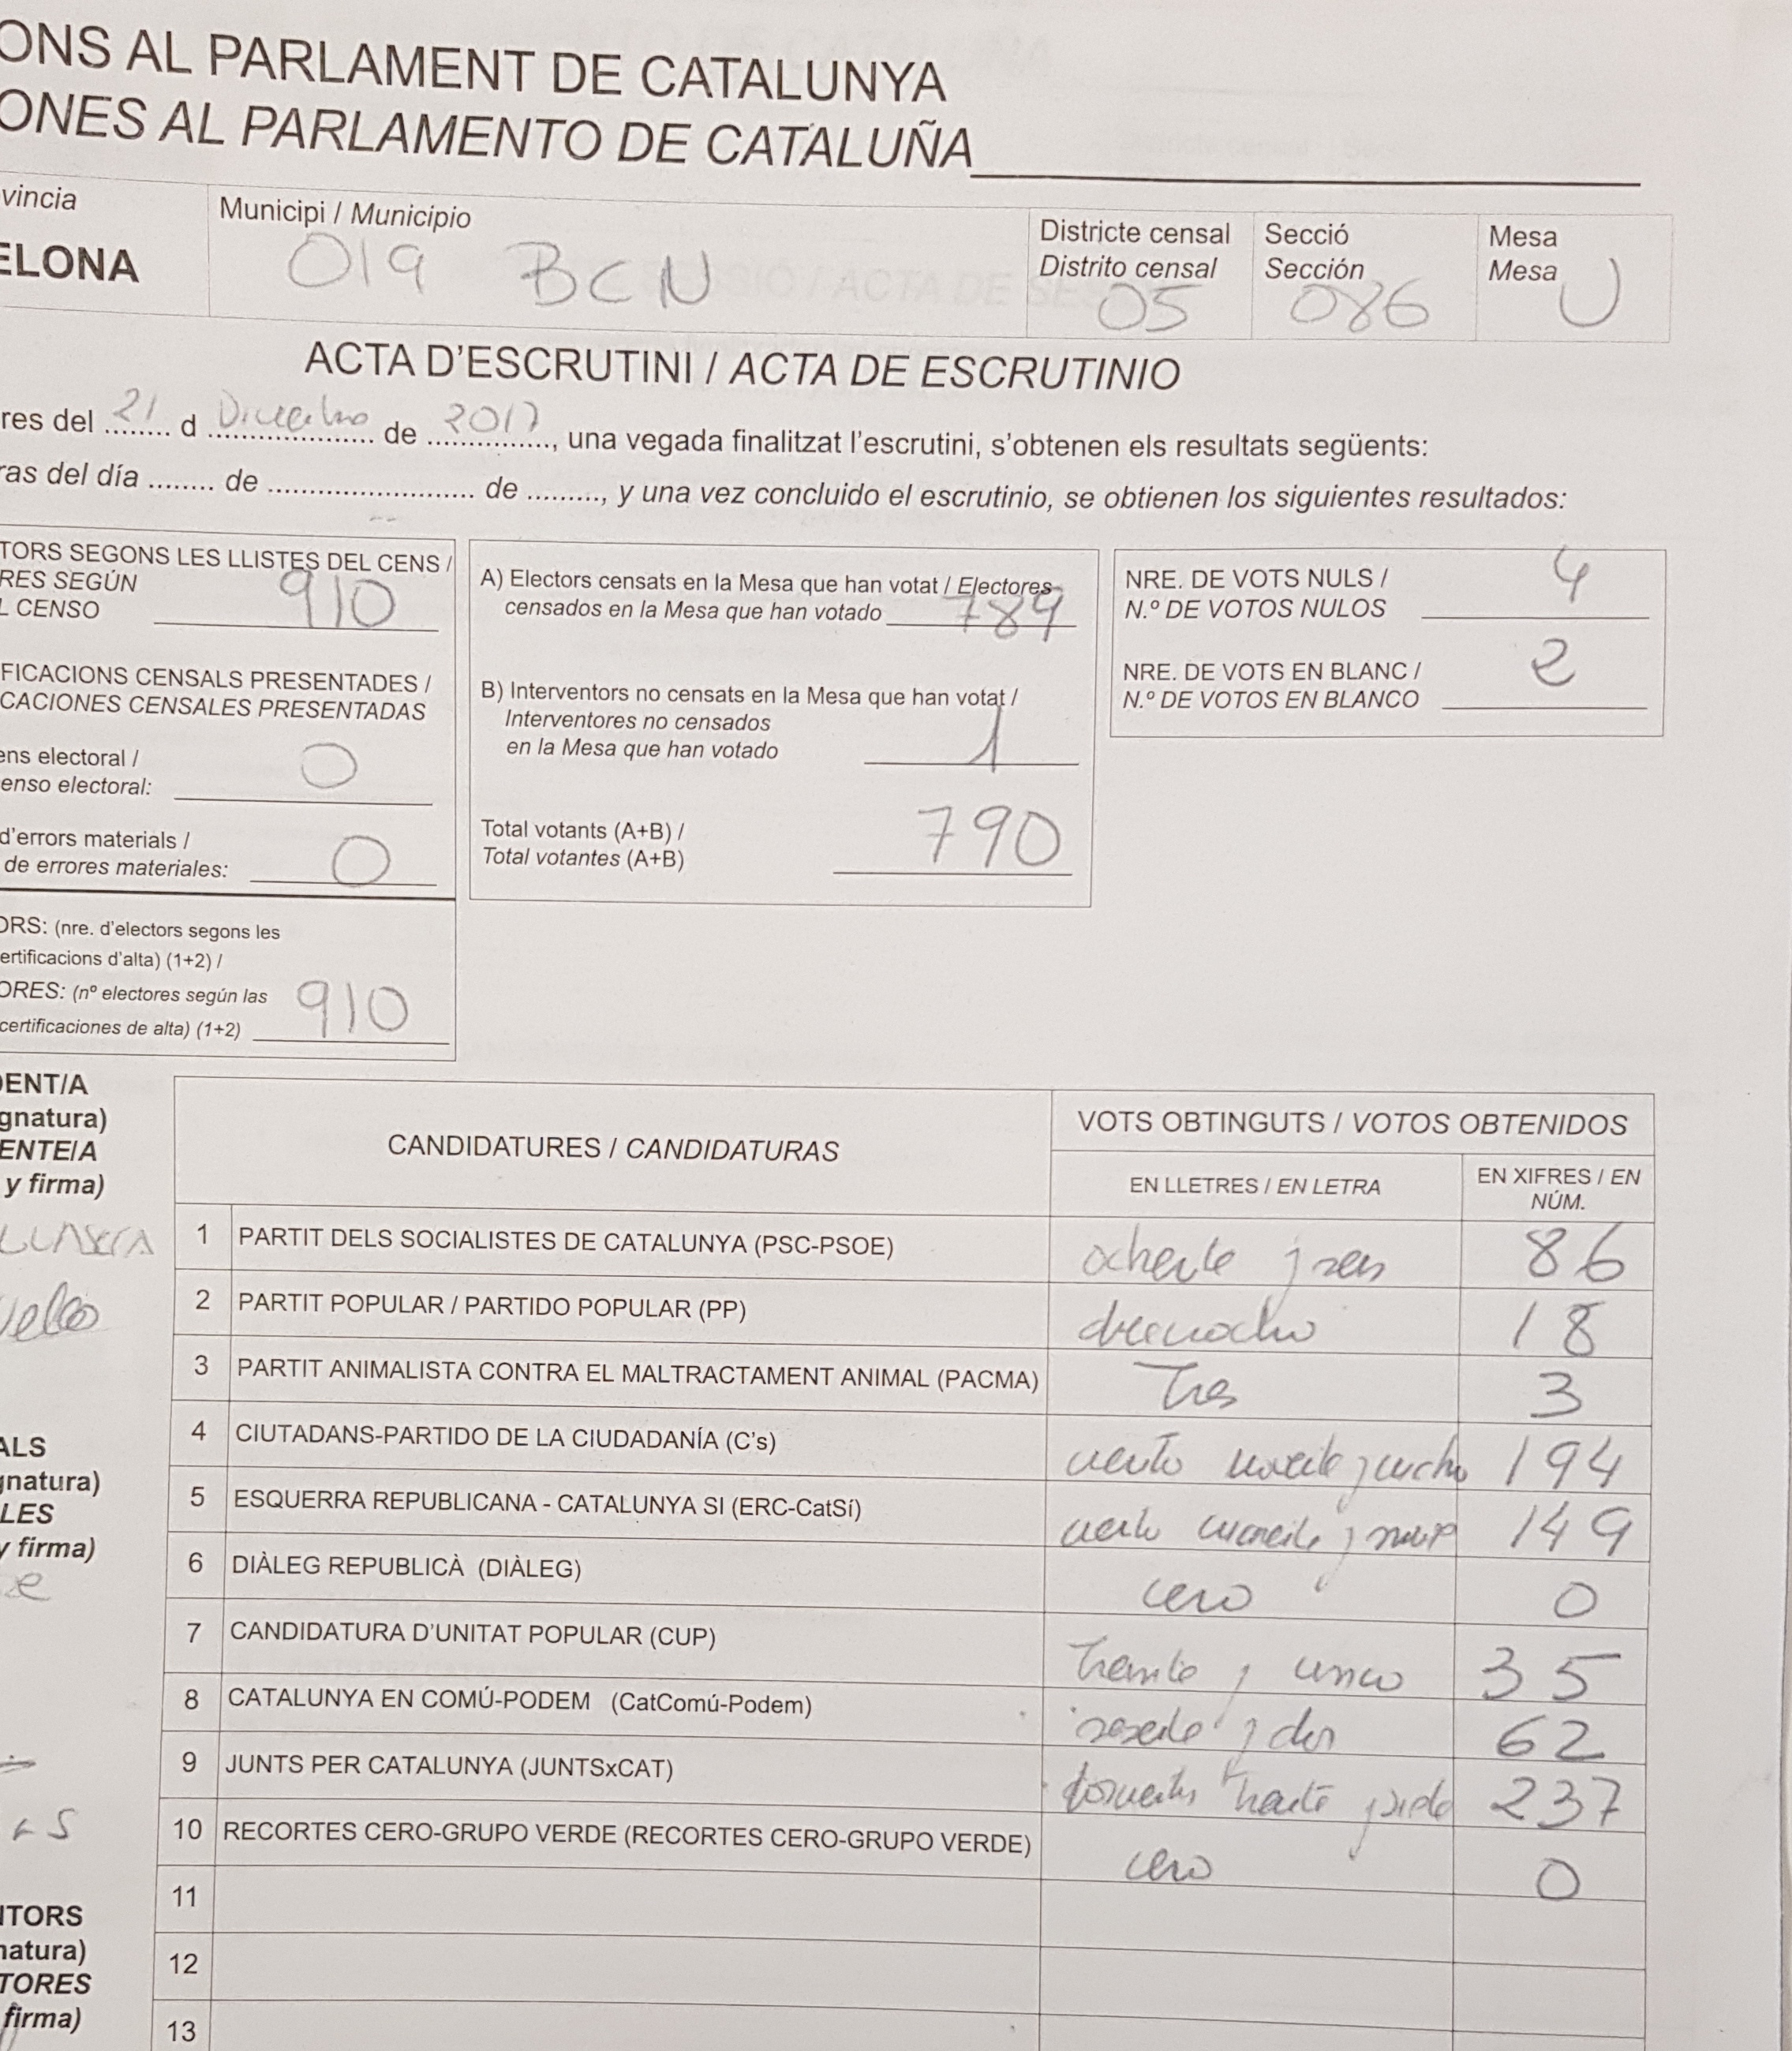 ONS AL PARLAMENT DE CATALUNYA
ONES AL PARLAMENTO DE CATALUÑA
vincia
ELONA
Municipi / Municipio
019 BCN
Districte censal
Distrito censal
05
Secció
Sección
086
Mesa
Mesa
U
ACTA D'ESCRUTINI / ACTA DE ESCRUTINIO
res del ........ 21 d .................... de ............ 2017, una vegada finalitzat l'escrutini, s'obtenen els resultats següents:
ras del día ........ de .......................... de ........., y una vez concluido el escrutinio, se obtienen los siguientes resultados:
TORS SEGONS LES LLISTES DEL CENS /
RES SEGÚN
L CENSO 910
FICACIONS CENSALS PRESENTADES /
CACIONES CENSALES PRESENTADAS
ens electoral /
enso electoral: 0
d'errors materials /
de errores materiales: 0
ORS: (nre. d'electors segons les
ertificacions d'alta) (1+2) /
ORES: (nº electores según las
certificaciones de alta) (1+2) 910
A) Electors censats en la Mesa que han votat / Electores
censados en la Mesa que han votado 789
B) Interventors no censats en la Mesa que han votat /
Interventores no censados
en la Mesa que han votado 1
Total votants (A+B) /
Total votantes (A+B) 790
NRE. DE VOTS NULS /
N.º DE VOTOS NULOS 4
NRE. DE VOTS EN BLANC /
N.º DE VOTOS EN BLANCO 2
DENT/A
gnatura)
ENTE/A
y firma)
ALS
gnatura)
LES
y firma)
NTORS
natura)
TORES
firma)
CANDIDATURES / CANDIDATURAS
VOTS OBTINGUTS / VOTOS OBTENIDOS
EN LLETRES / EN LETRA
EN XIFRES / EN NÚM.
1 PARTIT DELS SOCIALISTES DE CATALUNYA (PSC-PSOE) ochenta y seis 86
2 PARTIT POPULAR / PARTIDO POPULAR (PP) dieciocho 18
3 PARTIT ANIMALISTA CONTRA EL MALTRACTAMENT ANIMAL (PACMA) Tres 3
4 CIUTADANS-PARTIDO DE LA CIUDADANÍA (C's) ciento 194
5 ESQUERRA REPUBLICANA - CATALUNYA SI (ERC-CatSí) ciento 149
6 DIÀLEG REPUBLICÀ (DIÀLEG) cero 0
7 CANDIDATURA D'UNITAT POPULAR (CUP) Treinta y cinco 35
8 CATALUNYA EN COMÚ-PODEM (CatComú-Podem) sesenta y dos 62
9 JUNTS PER CATALUNYA (JUNTSxCAT) 237
10 RECORTES CERO-GRUPO VERDE (RECORTES CERO-GRUPO VERDE) cero 0
11
12
13